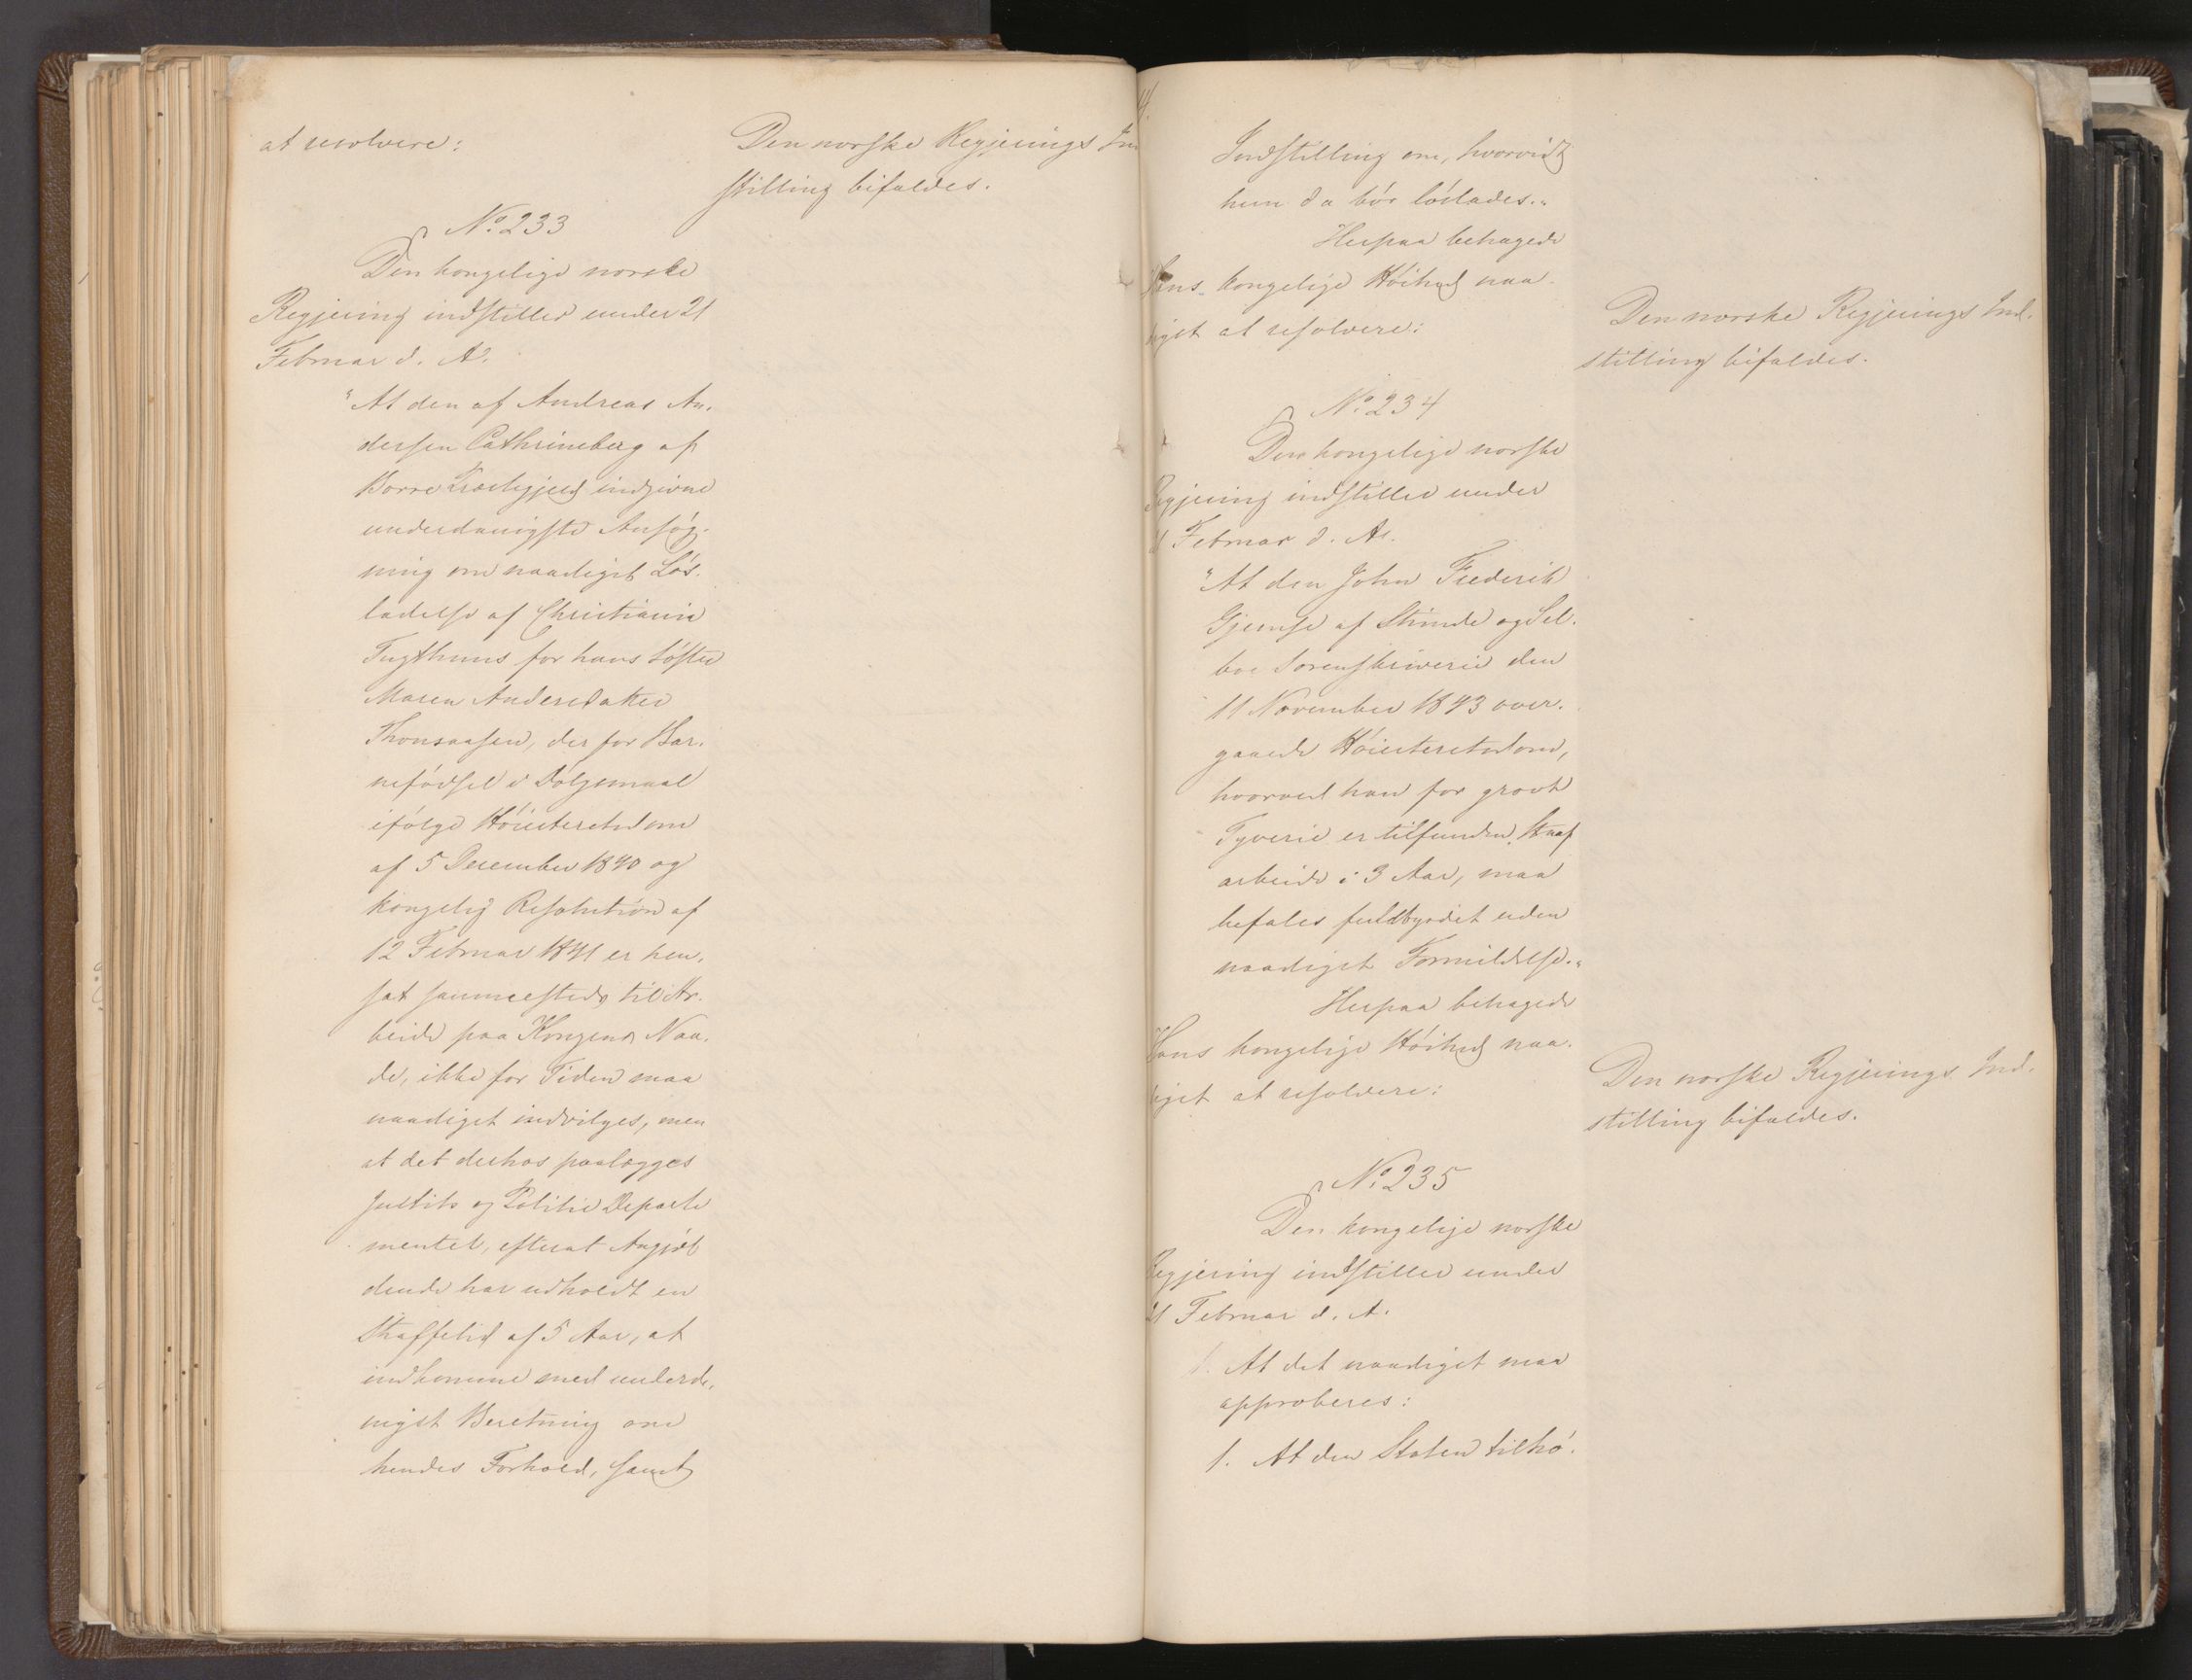 at resolvere:
Den norske Regjerings Ind
stilling bifaldes.
No. 233
Den kongelige norske
Regjering indstiller under 21
Februar d. A.
"At den af Andreas An-
dersen Cathrineberg af
Borre Præstegjeld indgivne
underdanigste Ansøg-
ning om naadigst Løs-
ladelse af Christiania
Tugthuus for hans Søster
Maren Andersdatter
Thonsaasen, der for Bar-
nefødsel i Dølgsmaal
ifølge Høiesteretsdom
af 5 December 1840 og
kongelig Resolution af
12 Februar 1841 er hen-
sat sammesteds til Ar-
beide paa Kongens Naa-
de, ikke for Tiden maa
naadigst indvilges, men
at det derhos paalægges
Justits og Politie Departe
mentet, efterat Angjæl
dende har udholdt en
Straffetid af 5 Aar, at
indkomme med underda-
nigst Beretning om
hendes Forhold, samt
Indstilling om, hvorvidt
hun da bør løslades."
Herpaa behagede
Hans kongelige Høihed naa-
digst at resolvere:
Den norske Regjerings Ind-
stilling bifaldes.
No. 234
Den kongelige norske
Regjering indstiller under
21 Februar d. A.
"At den John Frederik
Gjemse af Strinde og Sel-
boe Sorenskriverie den
11 November 1843 over-
gaaede Høiesteretsdom,
hvorved han for grovt
Tyverie er tilfunden Straf
arbeide i 3 Aar, maa
befales fuldbyrdet uden
naadigst Formildelse."
Herpaa behagede
Hans kongelige Høihed naa-
digst at resolvere:
Den norske Regjerings Ind-
stilling bifaldes.
No. 235
Den kongelige norske
Regjering indstiller under
21 Februar d. A.
1. At det naadigst maa
approberes:
1. At den Staten tilhø-